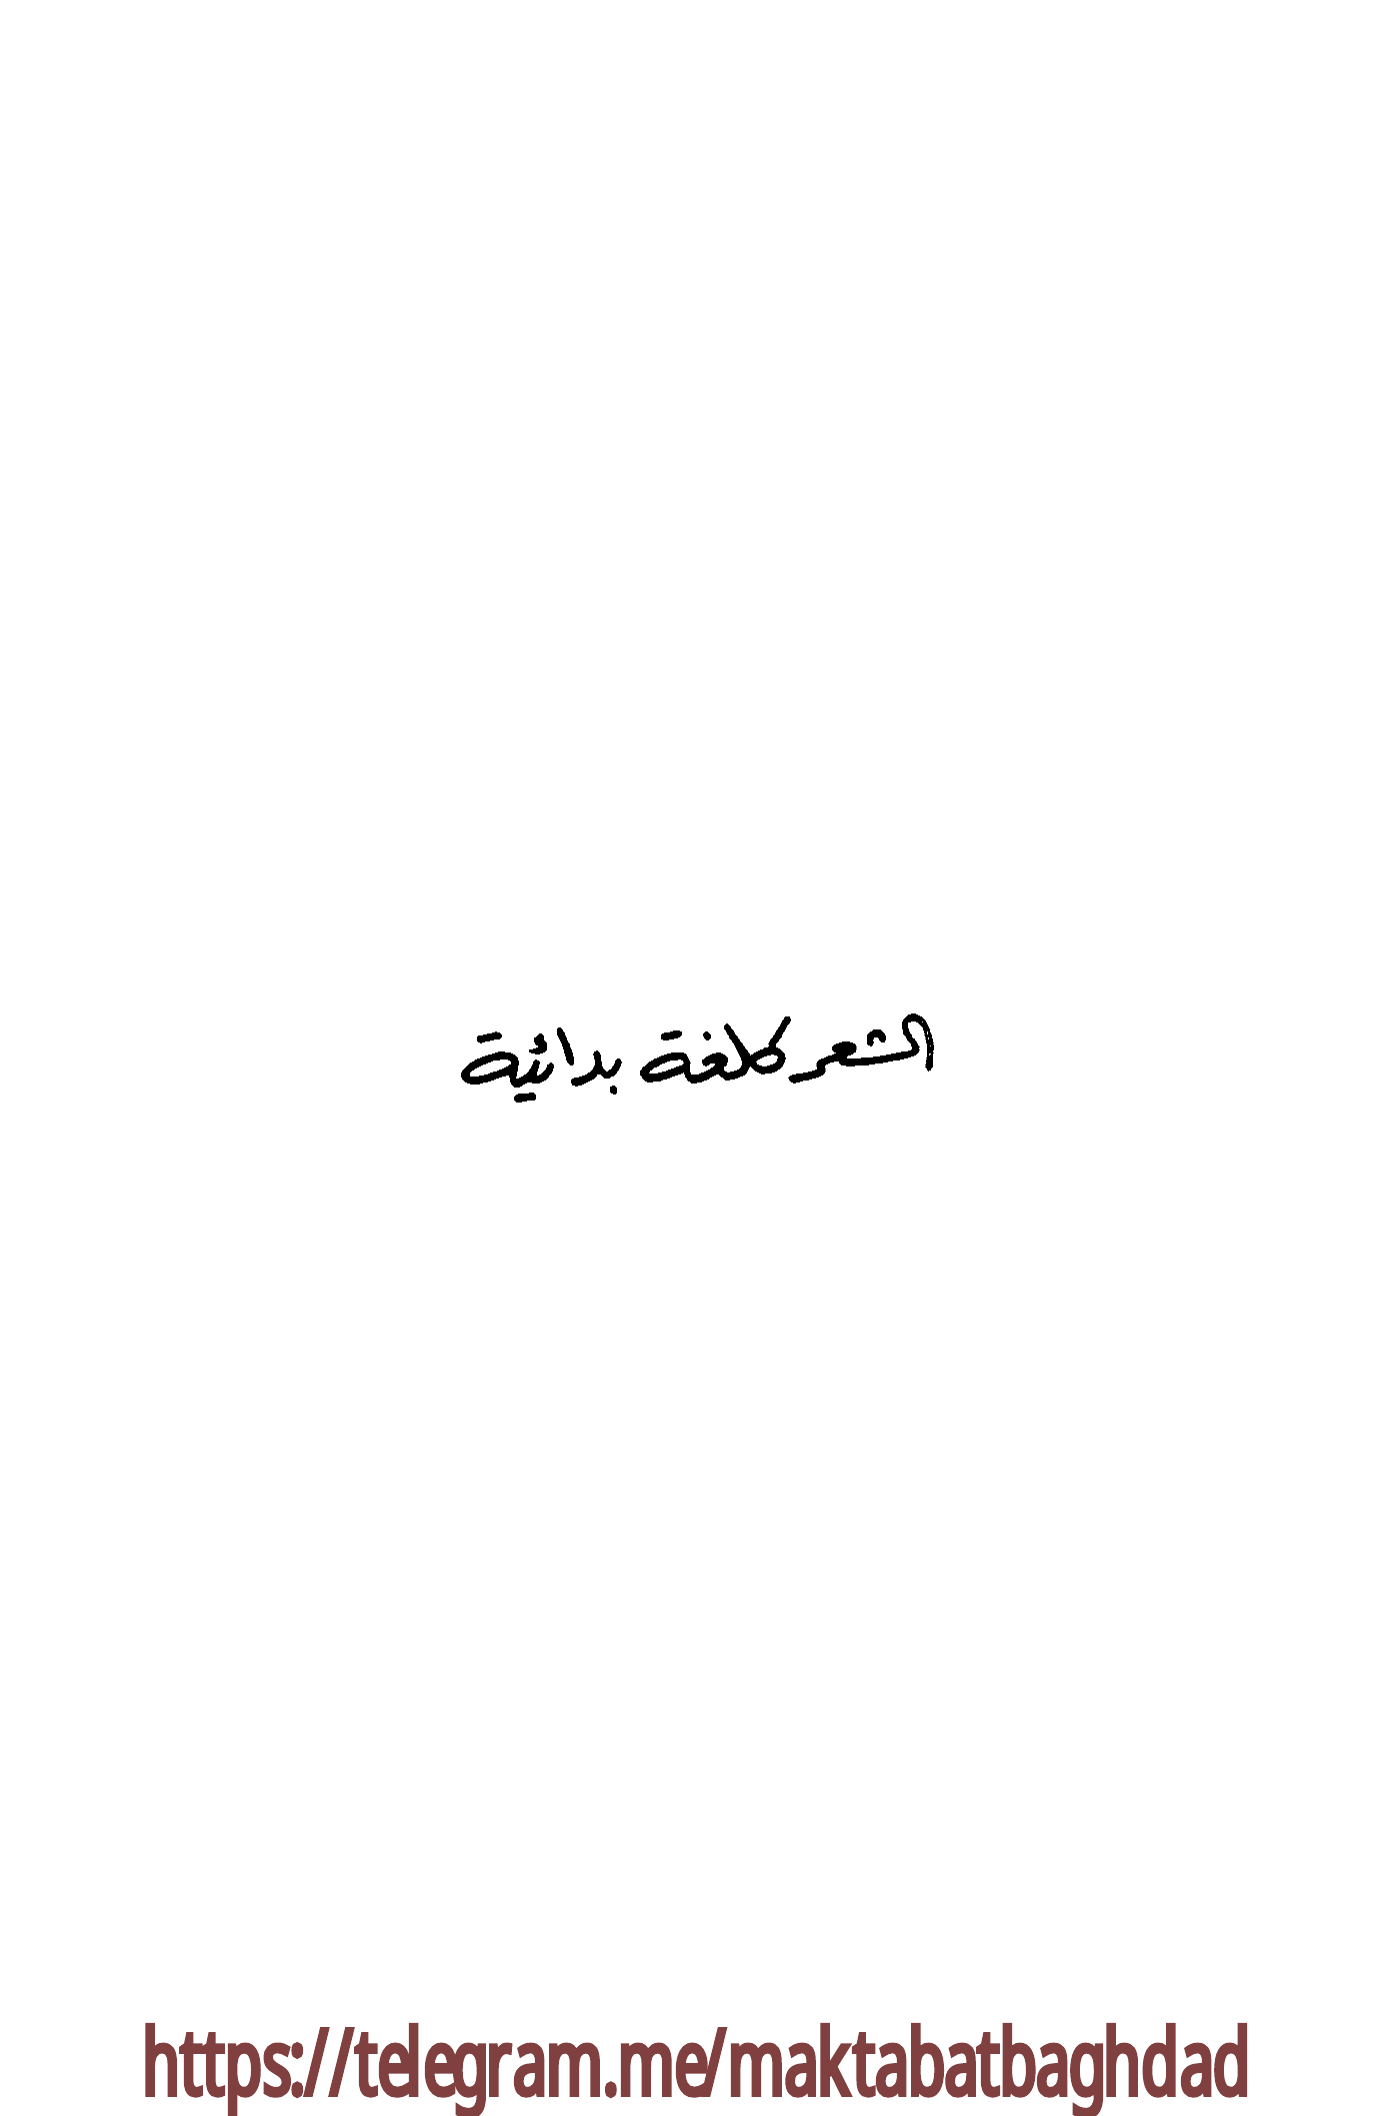 الشعر كلغة بدائية
https://telegram.me/maktabatbaghdad